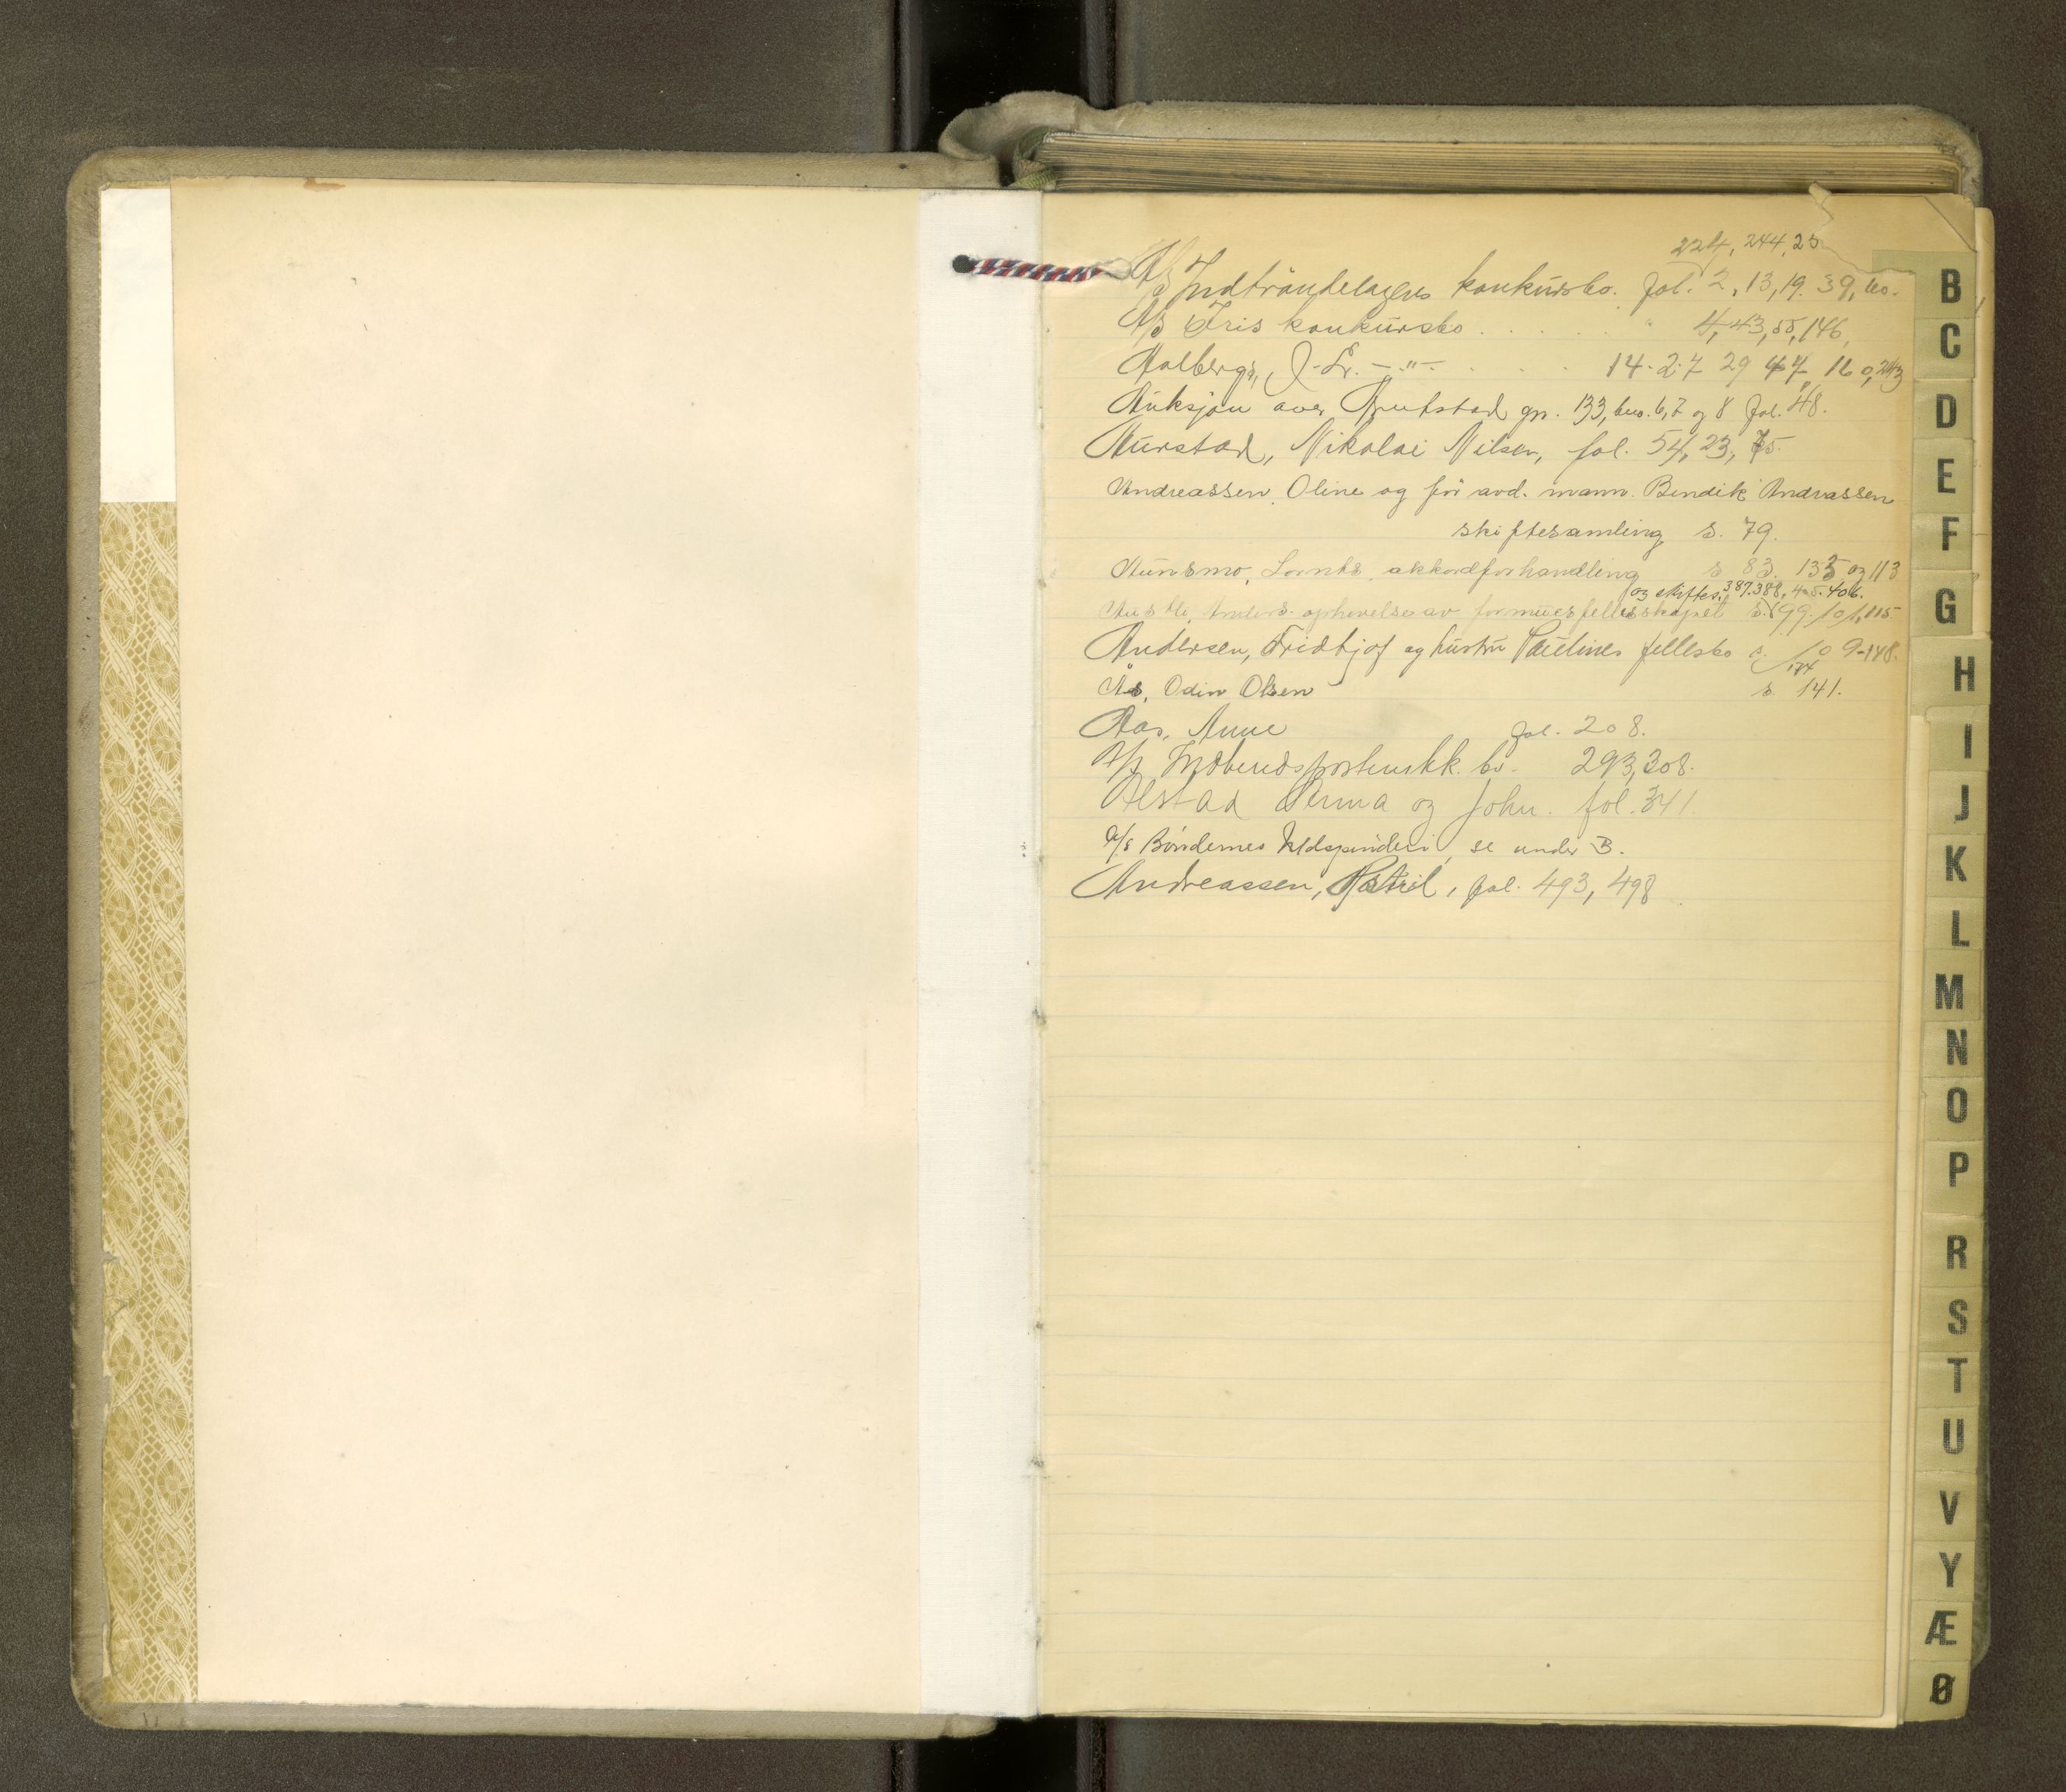 224, 244, 25
A/S Indtrøndelagens konkursbo. fol. 2, 13, 19. 39, 60.
A/S Iris konkursbo . . . . " 4, 43, 55, 146,
Aalbergs, J. Lr. — " — . . . 14 - 27 29 47, 160, 243
Auksjon over gn. 133, bno. 6, 7 og 8 fol. 48.
Aurstad, Nikolai Nilsen, fol. 54, 23, 75.
Andreassen, Oline og før avd. mann Bendik Andreassen
skiftesamling s. 79.
Aunsmo, Lornts, akkordforhandling s 83. 135 og 113
og skiftes. 387. 388, 405. 406.
Anders. ophevelse av formuesfellesskapet s. 99. 101, 115
Andersen, Fridtjof og hustru Paulines fellesbo s. 109-148.
184
Ås, Odin Olsen s. 141.
Aas, Anne fol. 208.
A/S kk. bo. 293, 308.
Alstad og John. fol. 341
A/S Bøndernes Uldspinderi, se under B.
Andreassen, Petril, fol. 493, 498
B
C
D
E
F
G
H
I
J
K
L
M
N
O
P
R
S
T
U
V
Y
Æ
Ø